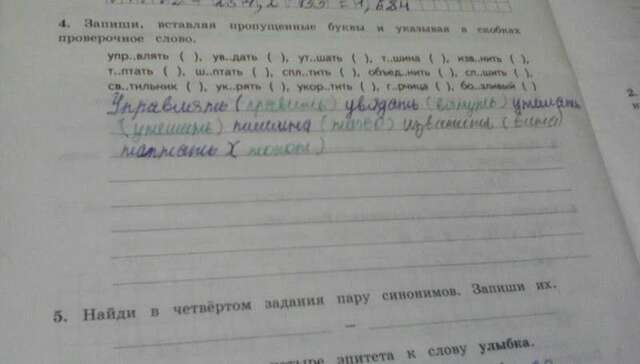 4. Запиши, вставляя пропущенные буквы и указывая в скобках
проверочное слово.
упр..влять ( ), ув..дать ( ), ут..шать ( ), т..шина ( ), изв..нить ( ),
т..птать ( ), ш..птать ( ), спл..тить ( ), объед..нить ( ), сл..шить ( ),
св..тильник ( ), ук..рять ( ), укор..тить ( ), г..рчица ( ), бо..зливый ( )
Управлять (править) увядать (вянуть) утешать
(утешить) тишина (тихо) извинить (вина)
топтать (топот)
5. Найди в четвёртом задания пару синонимов. Запиши их.
–
эпитета к слову улыбка.